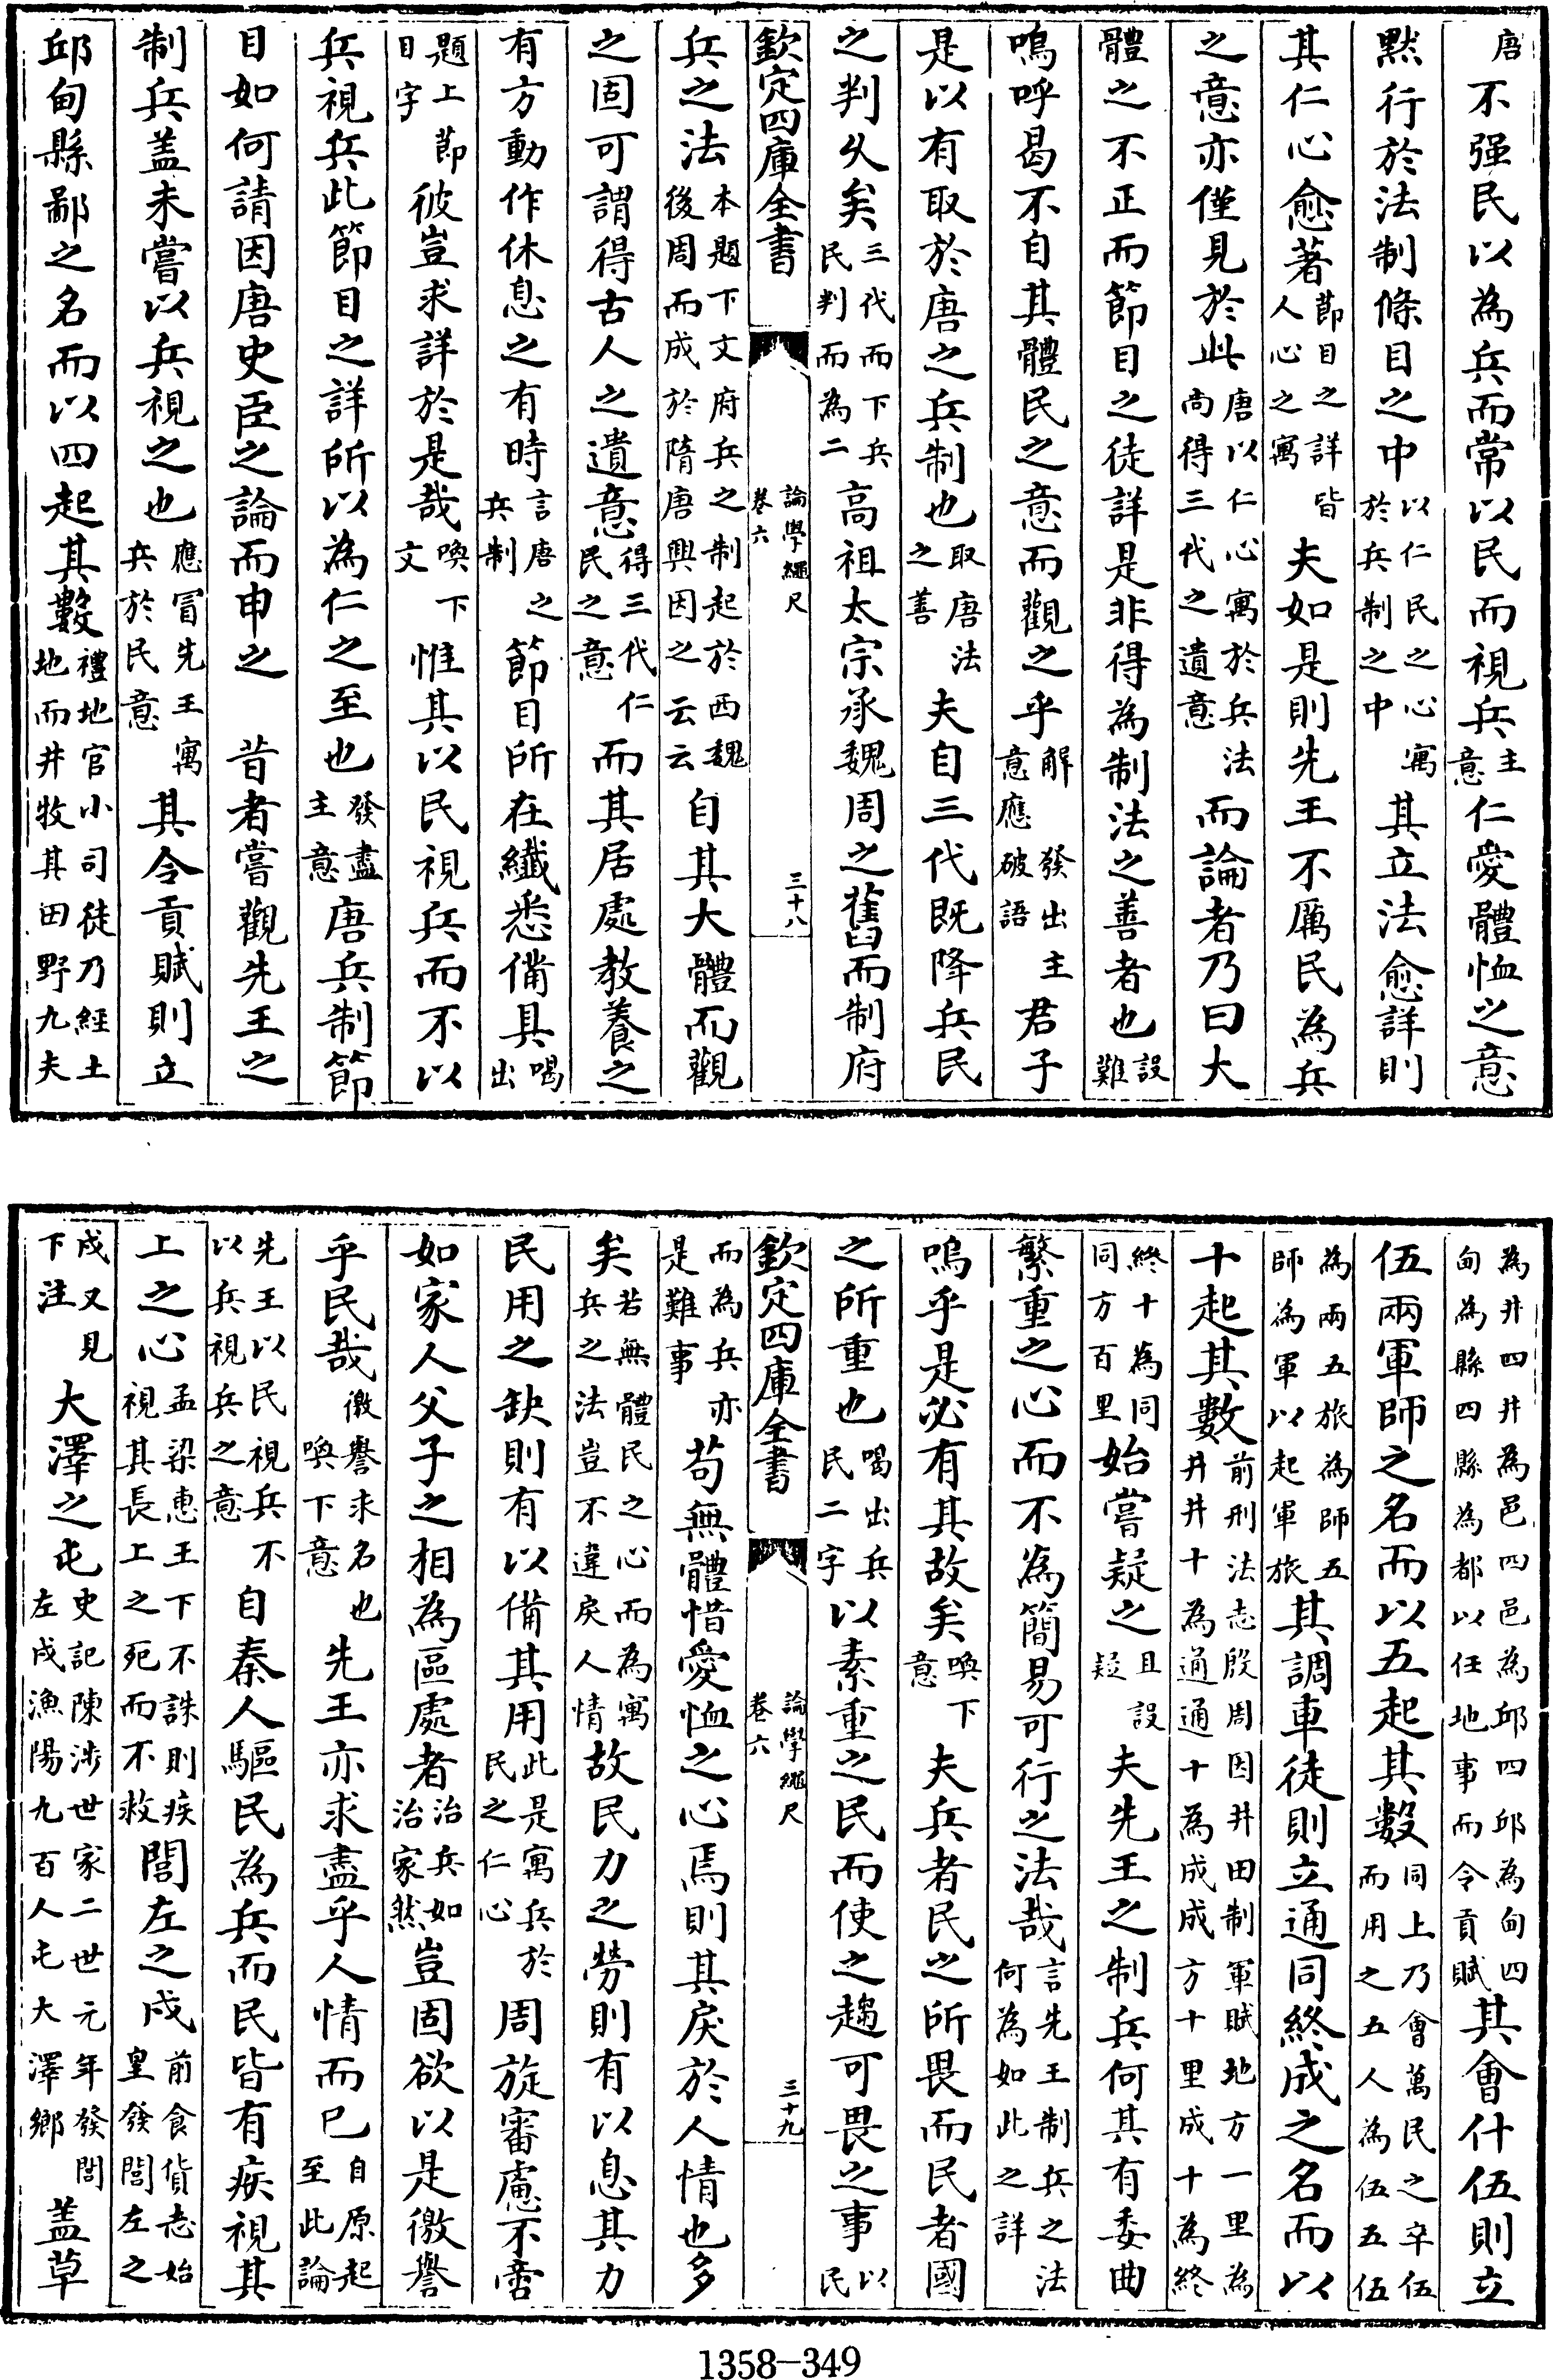 唐不强民以為兵而常以民而視兵主意仁愛體恤之意
黙行於法制條目之中以仁民之心寓於兵制之中其立法愈詳則
其仁心愈著節目之詳皆人心之寓夫如是則先王不厲民為兵
之意亦僅見於此唐以仁心寓於兵法尚得三代之遺意而論者乃曰大
體之不正而節目之徒詳是非得為制法之善者也設難
嗚呼曷不自其體民之意而觀之乎解發出主意應破語君子
是以有取於唐之兵制也取唐法之善夫自三代既降兵民
之判久矣三代而下兵民判而為二高祖太宗承魏周之舊而制府
欽定四庫全書 論學繩尺 卷六 三十八
兵之法本題下文府兵之制起於西魏後周而成於隋唐興因之云云自其大體而觀
之固可謂得古人之遺意得三代仁民之意而其居處教養之
有方動作休息之有時言唐之兵制節目所在纖悉備具喝出
題上節目字彼豈求詳於是哉喚下文惟其以民視兵而不以
兵視兵此節目之詳所以為仁之至也發盡主意唐兵制節
目如何請因唐史臣之論而申之昔者嘗觀先王之
制兵盖未嘗以兵視之也應冒先王寓兵於民意其令貢賦則立
邱甸縣鄙之名而以四起其數禮地官小司徒乃經土地而井牧其田野九夫
為井四井為邑四邑為邱四邱為甸四甸為縣四縣為都以任地事而令貢賦其會什伍則立
伍兩軍師之名而以五起其數同上乃會萬民之卒伍而用之五人為伍五伍
為兩五旅為師五師為軍以起軍旅其調車徒則立通同終成之名而以
十起其數前刑法志殷周因井田制軍賦地方一里為井井十為通通十為成成方十里成十為終
終十為同同方百里始嘗疑之且設疑夫先王之制兵何其有委曲
繁重之心而不為簡易可行之法哉言先王制兵之法何為如此之詳
嗚乎是必有其故矣喚下意夫兵者民之所畏而民者國
之所重也喝出兵民二字以素重之民而使之趨可畏之事以民
欽定四庫全書 論學繩尺 卷六 三十九
而為兵亦是難事苟無體惜愛恤之心焉則其戾於人情也多
矣若無體民之心而為寓兵之法豈不違戾人情故民力之勞則有以息其力
民用之缺則有以備其用此是寓兵於民之仁心周旋審慮不啻
如家人父子之相為區處者治兵如治家然豈固欲以是徼譽
乎民哉徼譽求名也喚下意先王亦求盡乎人情而已自原起至此論
先王以民視兵不以兵視兵之意自秦人驅民為兵而民皆有疾視其
上之心孟梁惠王下不誅則疾視其長上之死而不救閭左之戍前食貨志始皇發閭左之
戍又見下注大澤之屯史記陳涉世家二世元年發閭左戍漁陽九百人屯大澤鄉盖草
1358-349